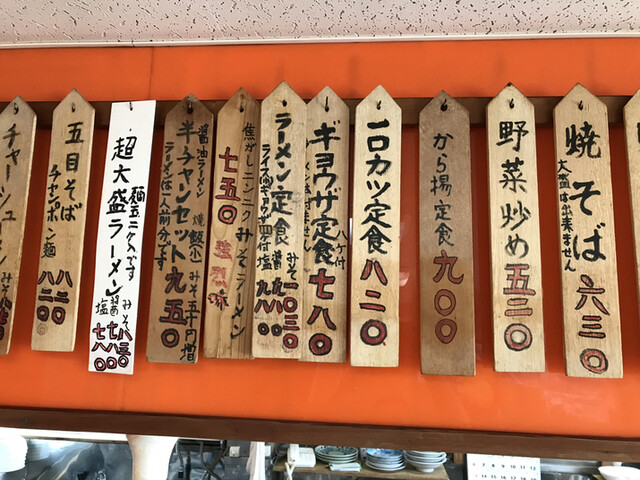 焼そば
大盛は出来ません
六三〇
野菜炒め
五三〇
から揚定食
九〇〇
一口カツ定食
八二〇
ギョウザ定食
八ケ付
七八〇
ラーメン定食
ライス
みそ一〇三〇
醤九八〇
塩九八〇
焦がしニンニクみそラーメン
七五〇
醤油ラーメン
半チャンセット
焼飯(小)
みそ五十円増
ラーメンは一人前分です
九五〇
麺三ニクです
超大盛ラーメン
みそ八三〇
醤七八〇
塩七八〇
五目そば
八二〇
チャンポン麺
八二〇
チャーシュー
みそ